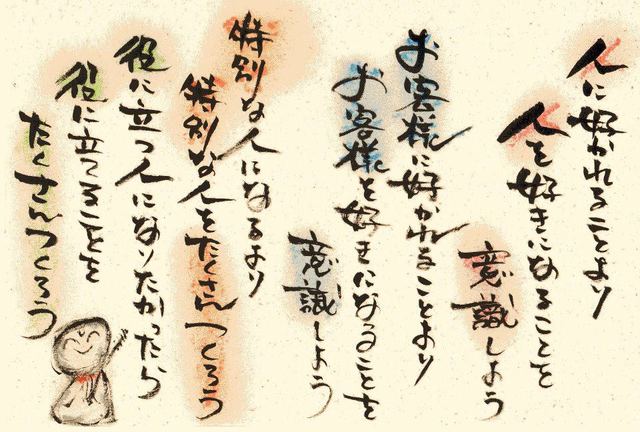 人に好かれることより
人を好きになることを
意識しよう
お客様に好かれることより
お客様を好きになることを
意識しよう
特別な人になるより
特別な人をたくさんつくろう
役に立つ人になりたかったら
役に立てることを
たくさんつくろう